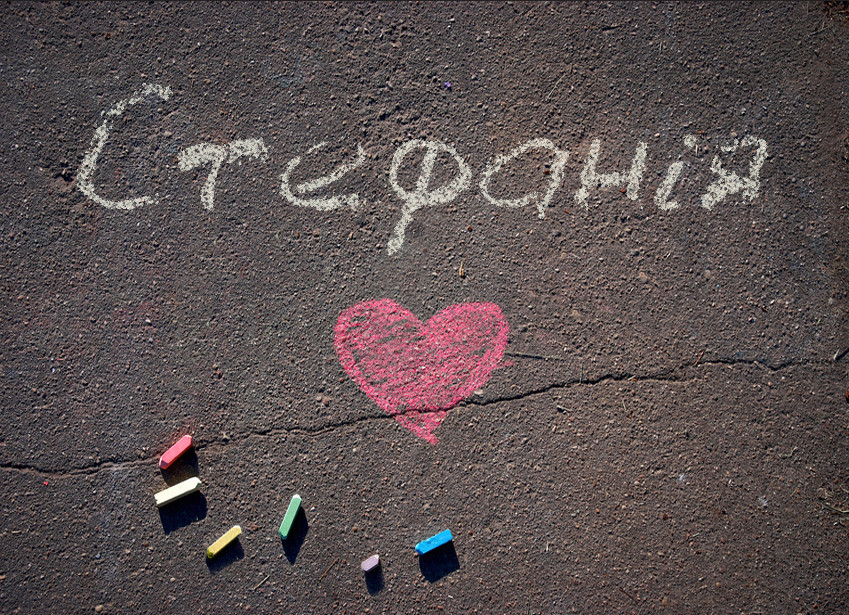 Стефанія